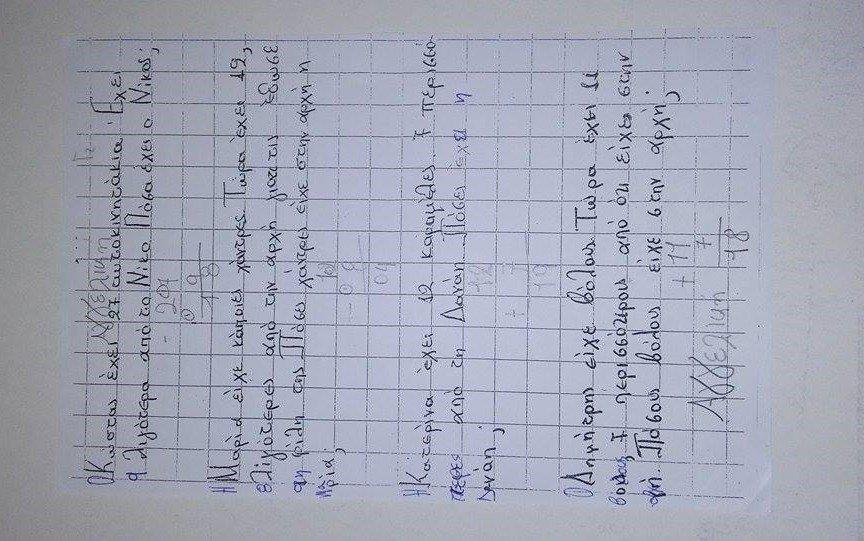 Αγγελική
Ο Κώστας έχει 27 αυτοκινητάκια. Έχει
9 λιγότερα από το Νίκο. Πόσα έχει ο Νίκος;
- 27
09
18
Η Μαρία είχε κάποιες χάντρες. Τώρα έχει 19,
8 λιγότερες από την αρχή γιατί τις έδωσε
στη φίλη της. Πόσες χάντρες είχε στην αρχή η
Μαρία;
Η Κατερίνα έχει 12 καραμέλες, 7 περισσό-
τερες από τη Δανάη. Πόσες έχει η
Δανάη;
12
+ 7
19
Ο Δημήτρης είχε βόλους. Τώρα έχει 11
βόλους, 7 περισσότερους από ότι είχε στην
αρχή. Πόσους βόλους είχε στην αρχή;
+ 11
7
18
Αγγελική